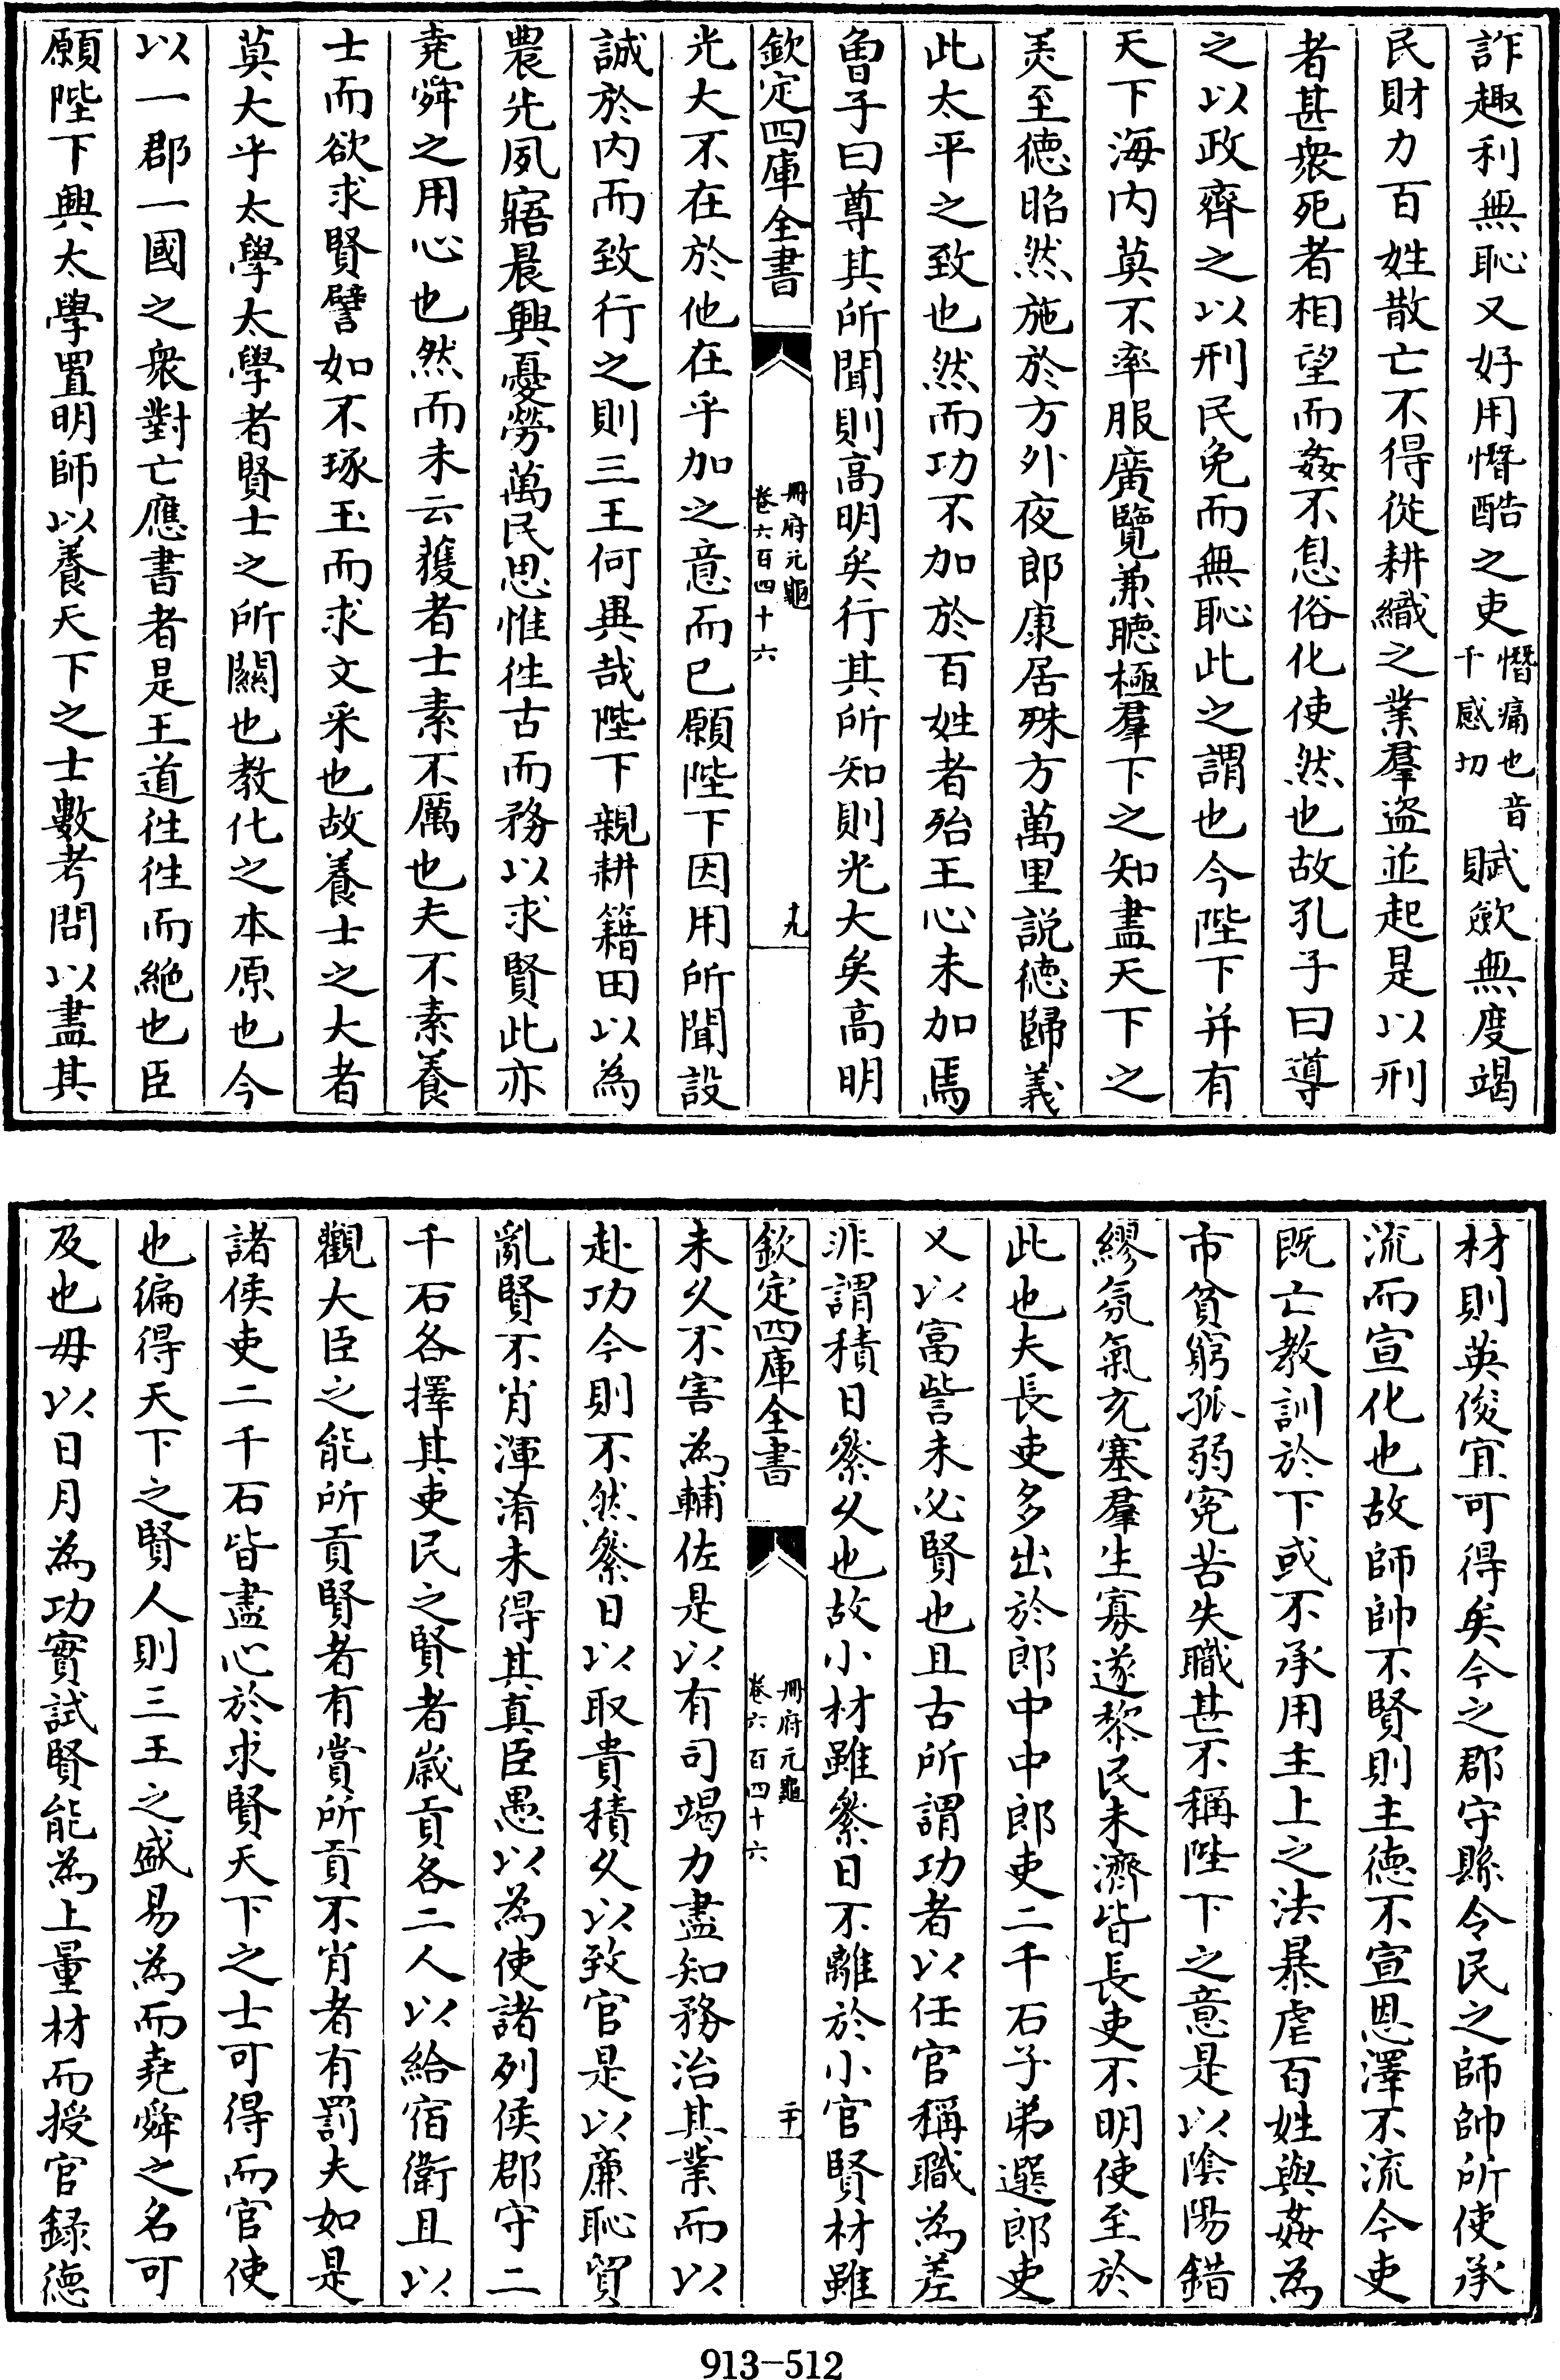 詐趣利無恥又好用憯酷之吏憯痛也音千感切賦歛無度竭
民財力百姓散亡不得從耕織之業羣盗並起是以刑
者甚衆死者相望而姦不息俗化使然也故孔子曰導
之以政齊之以刑民免而無恥此之謂也今陛下并有
天下海内莫不率服廣覽兼聴極羣下之知盡天下之
羙至徳昭然施於方外夜郎康居殊方萬里説徳歸義
此太平之致也然而功不加於百姓者殆王心未加焉
曾子曰尊其所聞則高明矣行其所知則光大矣高明
欽定四庫全書 冊府元龜 卷六百四十六 十九
光大不在於他在乎加之意而已願陛下因用所聞設
誠於内而致行之則三王何異哉陛下親耕籍田以為
農先夙寤晨興憂勞萬民思惟徃古而務以求賢此亦
堯舜之用心也然而未云獲者士素不厲也夫不素養
士而欲求賢譬如不琢玉而求文采也故養士之大者
莫大乎太學太學者賢士之所闗也教化之本原也今
以一郡一國之衆對亡應書者是王道徃徃而絶也臣
願陛下興太學置明師以養天下之士數考問以盡其
材則英俊宜可得矣今之郡守縣令民之師帥所使承
流而宣化也故師帥不賢則主徳不宣恩澤不流今吏
既亡教訓於下或不承用主上之法暴虐百姓與姦為
市貧窮孤弱寃苦失職甚不稱陛下之意是以陰陽錯
繆氛氣充塞羣生寡遂黎民未濟皆長吏不明使至於
此也夫長吏多出於郎中中郎吏二千石子弟選郎吏
又以富訾未必賢也且古所謂功者以任官稱職為差
非謂積日絫久也故小材雖絫日不離於小官賢材雖
欽定四庫全書 冊府元龜 卷六百四十六 二十
未久不害為輔佐是以有司竭力盡知務治其業而以
赴功今則不然絫日以取貴積久以致官是以亷恥貿
亂賢不肖渾淆未得其真臣愚以為使諸列侯郡守二
千石各擇其吏民之賢者嵗貢各二人以給宿衛且以
觀大臣之能所貢賢者有賞所貢不肖者有罰夫如是
諸侯吏二千石皆盡心於求賢天下之士可得而官使
也徧得天下之賢人則三王之盛易為而堯舜之名可
及也毋以日月為功實試賢能為上量材而授官録徳
913-512